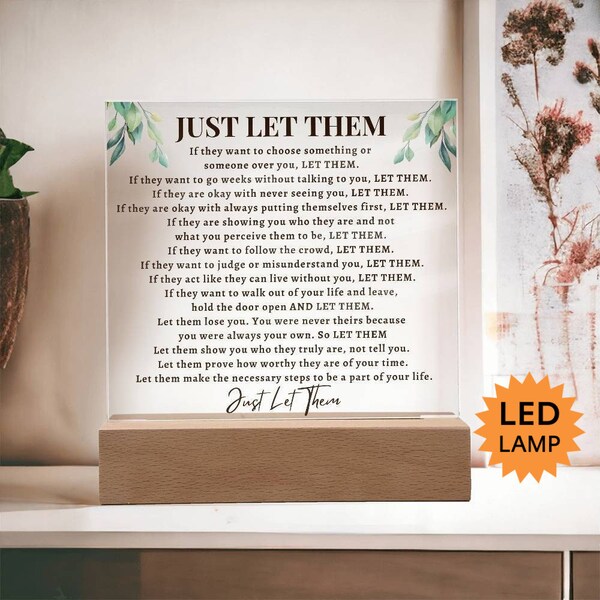 JUST LET THEM
If they want to choose something or
someone over you, LET THEM.
If they want to go weeks without talking to you, LET THEM.
If they are okay with never seeing you, LET THEM.
If they are okay with always putting themselves first, LET THEM.
If they are showing you who they are and not
what you perceive them to be, LET THEM.
If they want to follow the crowd, LET THEM.
If they want to judge or misunderstand you, LET THEM.
If they act like they can live without you, LET THEM.
If they want to walk out of your life and leave,
hold the door open AND LET THEM.
Let them lose you. You were never theirs because
you were always your own. So LET THEM
Let them show you who they truly are, not tell you.
Let them prove how worthy they are of your time.
Let them make the necessary steps to be a part of your life.
Just Let Them
LED
LAMP